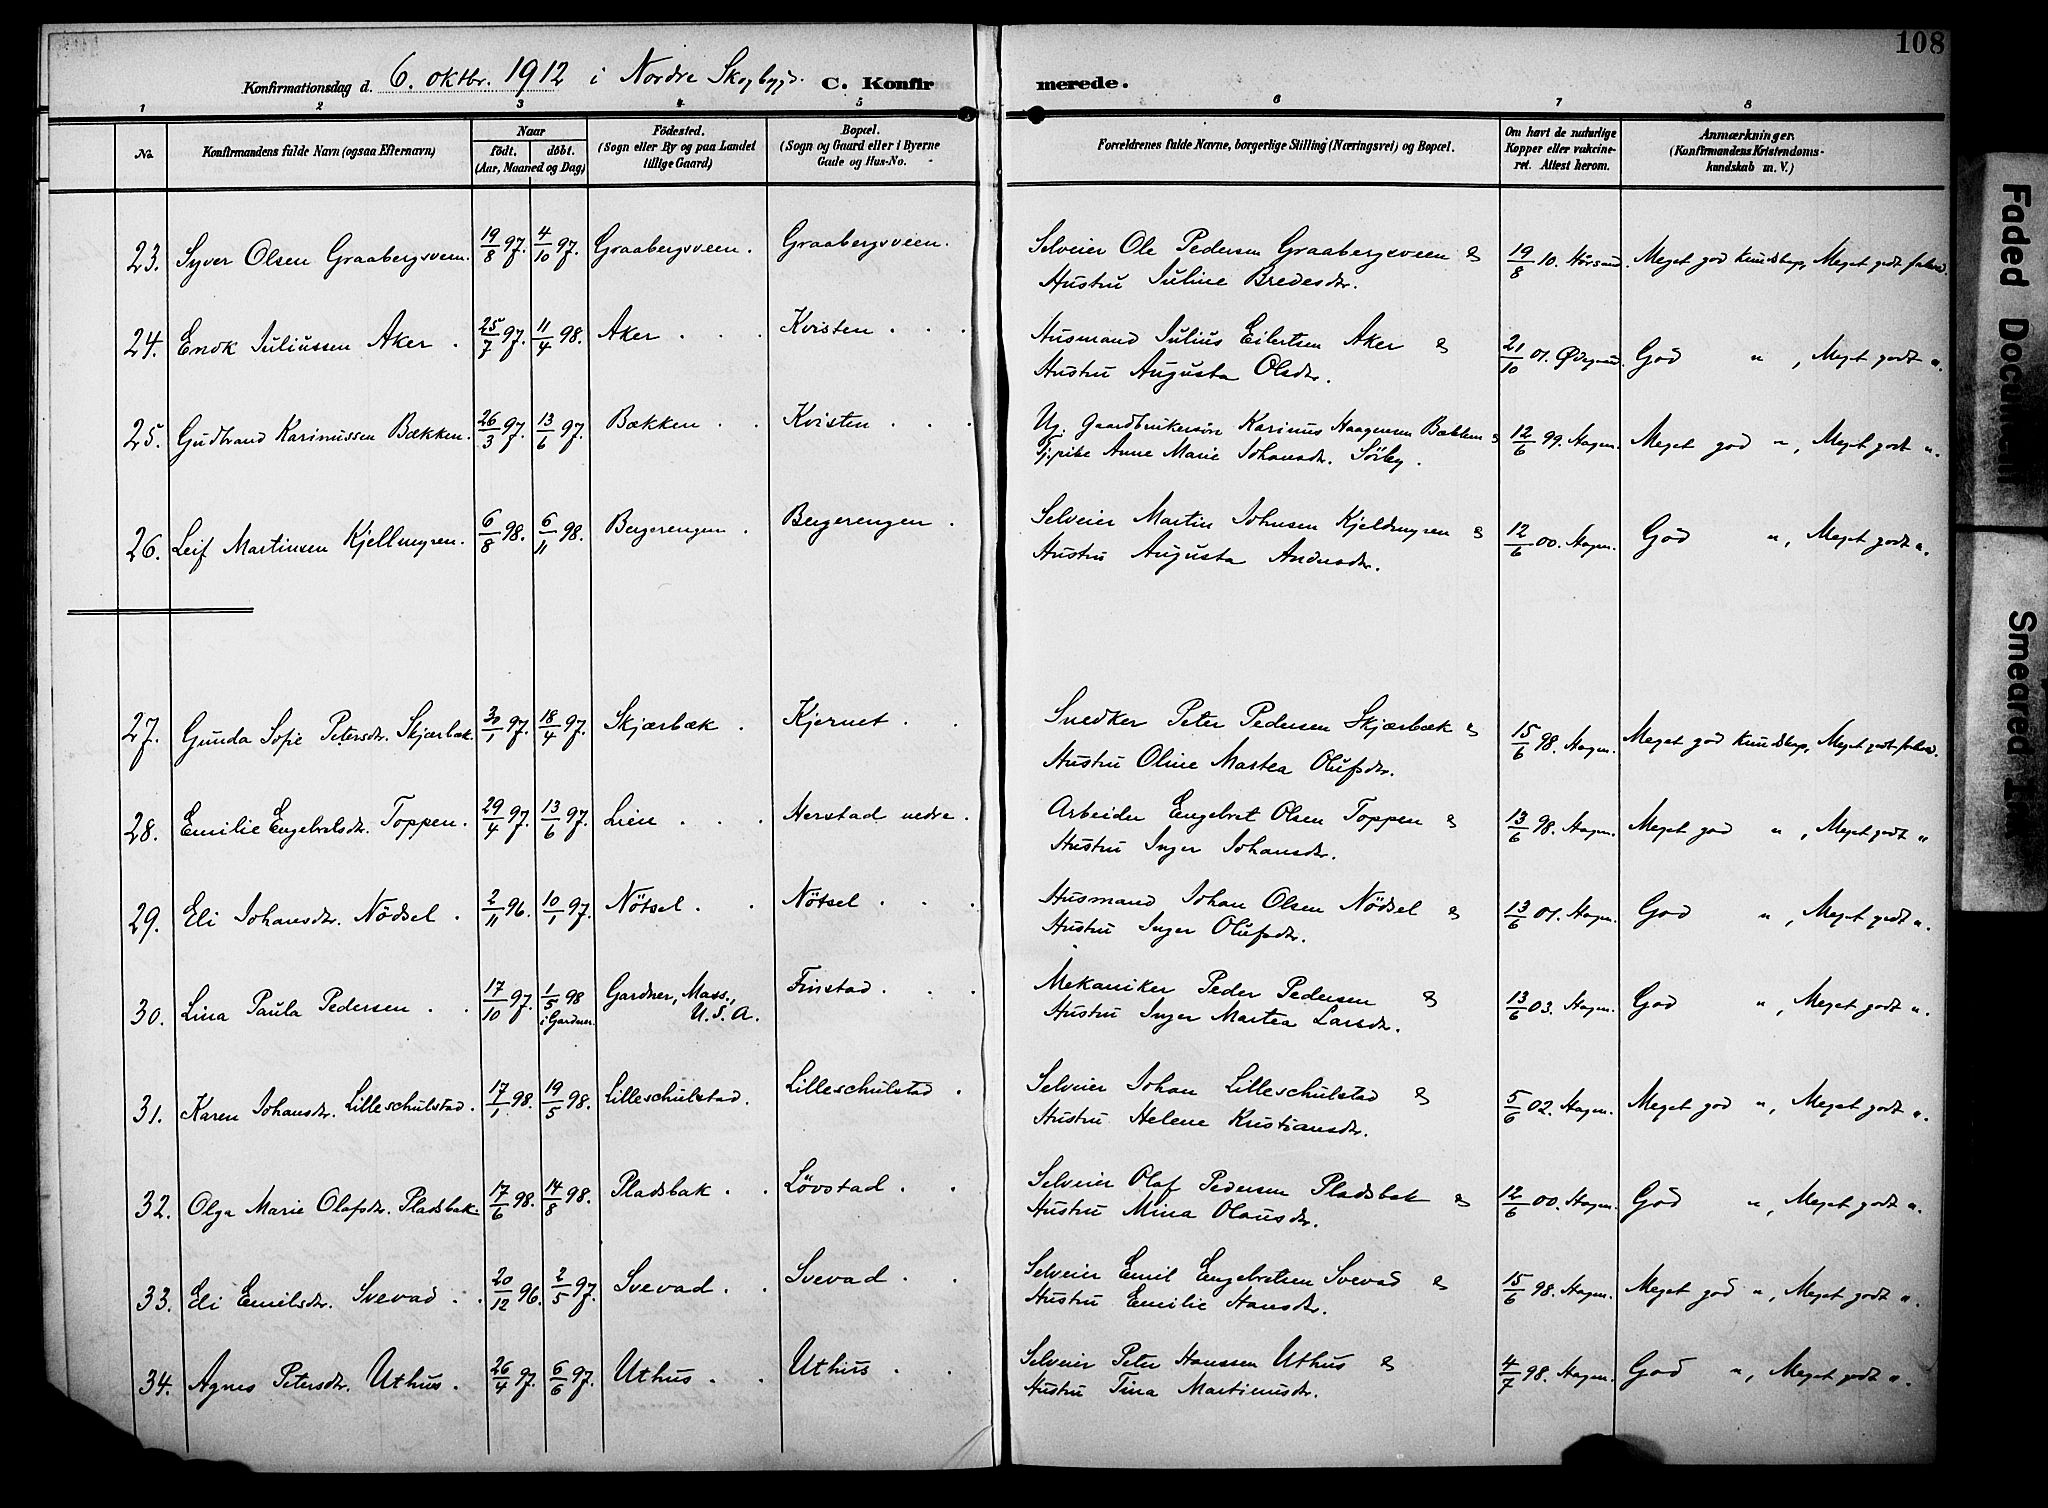 108
Konfirmationsdag d. 6. oktbr. 1912 i Nordre Skogbygd. C. Konfirmerede.
1 2 3 4 5 6 7 8
No. Konfirmandens fulde Navn (ogsaa Efternavn) Naar födt. döbt. (Aar, Maaned og Dag) Födested. (Sogn eller By og paa Landet tillige Gaard) Bopæl. (Sogn og Gaard eller i Byerne Gade og Hus-No. Forældrenes fulde Navne, borgerlige Stilling (Næringsvei) og Bopæl. Om havt de naturlige Kopper eller vakcineret. Attest herom. Anmærkninger. (Konfirmandens Kristendomskundskab m. V.)
23. Syver Olsen Graabergsveen. 19/8 97. 4/10 97. Graabergsveen. Graabergsveen. Selveier Ole Pedersen Graabergsveen & 19/8 10. Meget god Kundskap, Meget godt forhold.
Hustru Juline Bredesdtr.
24. Enok Juliussen Aker. 25/7 97. 11/4 98. Aker . . . Kvisten . . . Husmand Julius Eilertsen Aker & 21/10 01. Ødegaard. God " , Meget godt ".
Hustru Augusta Olsdtr.
25. Gudbrand Karinussen Bækken. 26/3 97. 13/6 97. Bækken . . Kvisten . . . Ug. Gaardbrukersön Karinus Haagensen Bækken & 12/6 99. Hagen. Meget god " , Meget godt ".
Pjpike Anne Marie Johansdtr. Sörby.
26. Leif Martinsen Kjellmyren. 6/8 98. 6/11 98. Bergerengen . Bergerengen . Selveier Martin Johnsen Kjeldmyren & 12/6 00. Hagen. God " , Meget godt ".
Hustru Augusta Andersdtr.
27. Gunda Sofie Petersdtr. Skjærbæk. 30/1 97. 18/4 97. Skjærbæk . Kjernet . . Snedker Peter Pedersen Skjærbæk & 15/6 98. Hagen. Meget god Kundskap, Meget godt forhold.
Hustru Oline Martea Olufsdtr.
28. Emilie Engebretsdtr. Toppen. 29/4 97. 13/6 97. Lien . . . Herstad nedre . Arbeider Engebret Olsen Toppen & 13/6 98. Hagen. Meget god " , Meget godt "
Hustru Inger Johansdtr.
29. Eli Johansdtr. Nödsel . 2/11 96. 10/1 97. Nötsel . . Nötsel . . . Husmand Johan Olsen Nödsel & 13/6 01. Hagen. God " , Meget godt ".
Hustru Inger Olufsdtr.
30. Lina Paula Pedersen . . 17/10 97. 1/5 98 i Gardner. Gardner, Mass., U.S.A. Finstad . . . Mekaniker Peder Pedersen & 13/6 03. Hagen. God " , Meget godt ".
Hustru Inger Martea Larsdtr.
31. Karen Johansdtr. Lilleschulstad. 17/1 98. 19/5 98. Lilleschulstad. Lilleschulstad . Selveier Johan Lilleschulstad & 5/6 02. Hagen. Meget god " , Meget godt ".
Hustru Helene Kristiansdtr.
32. Olga Marie Olafsdtr. Pladsbak. 17/6 98. 14/8 98. Pladsbak . . Lövstad . . Selveier Olaf Pedersen Pladsbak & 12/6 00. Hagen. God " , Meget godt ".
Hustru Mina Olausdtr.
33. Eli Emilsdtr. Svevad . . 20/12 96. 2/5 97. Svevad . . Svevad . . Selveier Emil Engebretsen Svevad & 15/6 98. Hagen. Meget god " , Meget godt ".
Hustru Emilie Hansdtr.
34. Agnes Petersdtr. Uthus . 26/4 97. 6/6 97. Uthus . . Uthus . . Selveier Peter Hanssen Uthus & 4/7 98. Hagen. God " , Meget godt ".
Hustru Tina Martinusdtr.
Faded Document
Smeared Ink